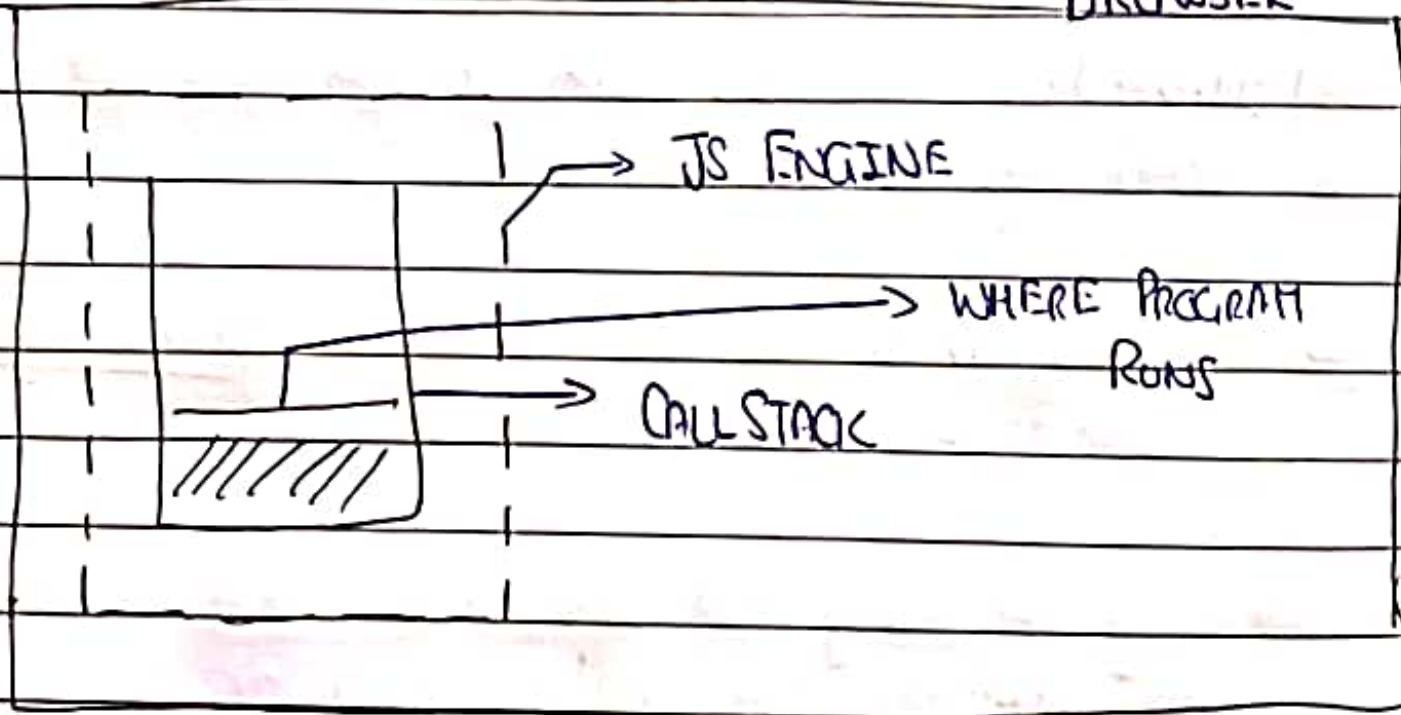 BROWSER
JS ENGINE
WHERE PROGRAM
RUNS
CALL STACK